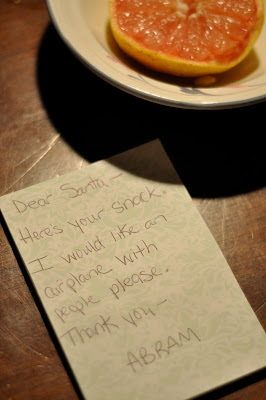 Dear Santa-
Here's your snack.
I would like an
airplane with
people please.
Thank you-
ABRAM